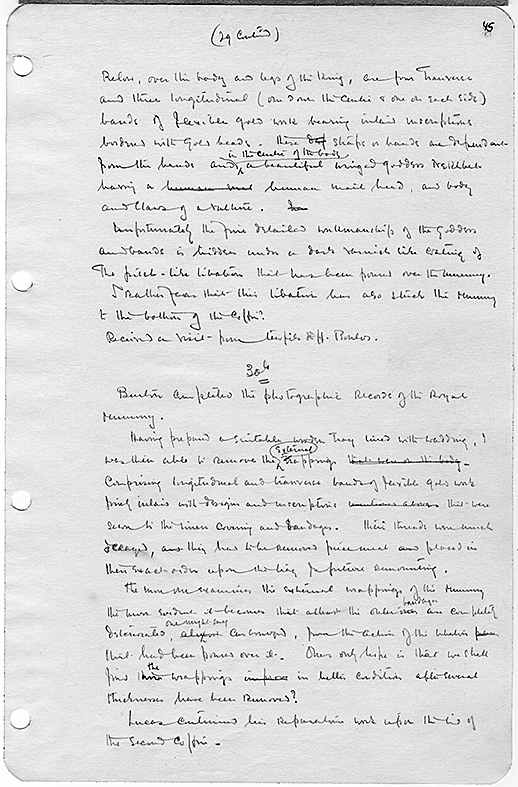 45
(29 Cont'd)
Below, over the body and legs of the King, are four Transverse
and three longitudinal (one down the Centre & one on each side)
bands of flexible gold work bearing inlaid inscriptions
bordered with Gold beads. these straps or bands are dependant
in the centre of the body
from the hands and, a beautiful winged goddess Nekhbet
having a human human head, and body
and Claws of a vulture.
Unfortunately the fine detailed workmanship of the Goddess
and bands is hidden under a dark varnish like coating of
the pitch-like libation that has been poured over the mummy.
I rather fear that this libation has also stuck the mummy
to the bottom of the Coffin?
Received a visit from
30th
Burton completed the photographic Records of the Royal
mummy.
Having prepared a suitable wooden Tray lined with wadding, I
External
was then able to remove the trappings that were on the body -
Comprising longitudinal and transverse bands of flexible gold work
finely inlaid with designs and inscriptions mentioned above that were
sewn to the linen covering and bandages. Their threads were much
decayed, and they had to be removed piecemeal and placed in
their exact order upon the tray for future remounting.
The more one examines the external wrappings of the mummy
bandages
the more evident it becomes that at least the outer are completely
one might say
deteriorated, almost Carbonized, from the action of the libation
that had been poured over it. Ones only hope is that we shall
the
find wrappings in better condition after several
thicknesses have been removed?
Lucas continued his reparation work upon the lid of
the Second Coffin.